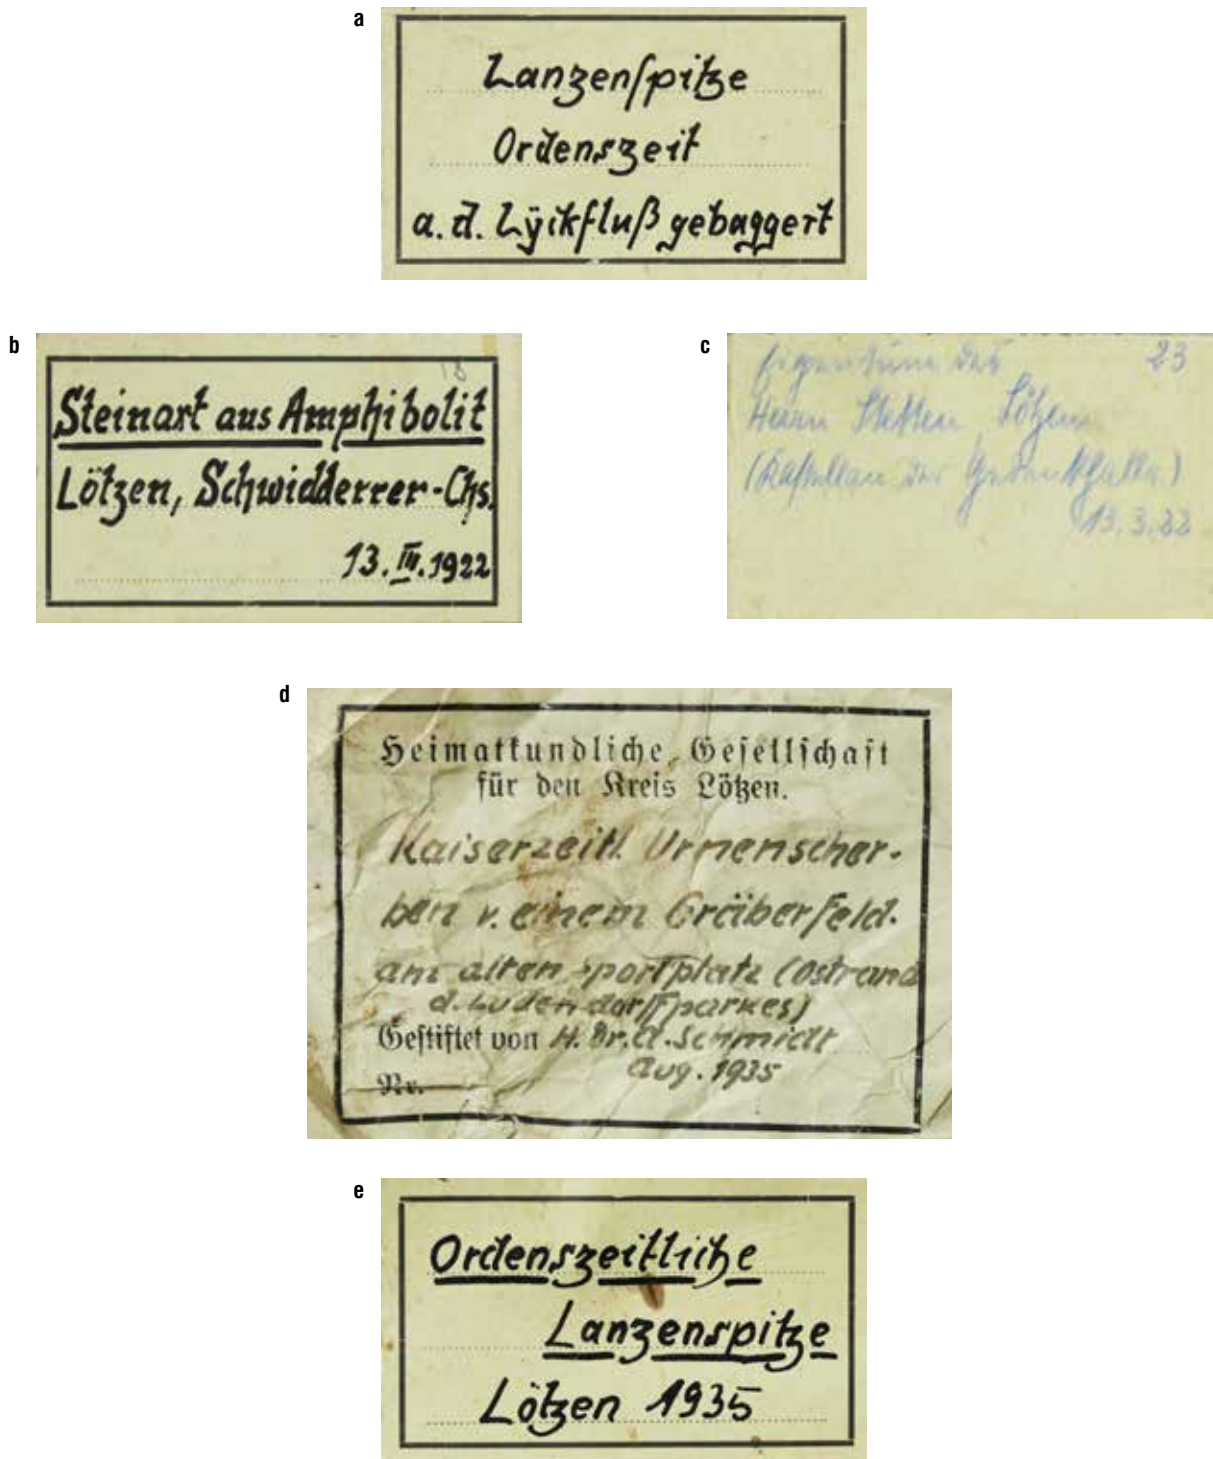 a
Lanzenspitze
Ordenszeit
a. d. Lÿckfluß gebaggert
b
18
Steinart aus Amphibolit
Lötzen, Schwidderrer-Chs.
13. III. 1922
c
Eigentum des 23
Herrn Stetten, Lötzen
(Kastellan der Gedenkhalle)
13.3.22
d
Heimatkundliche Gesellschaft
für den Kreis Lötzen.
Kaiserzeitl. Urnenscher-
ben v. einem Gräberfeld.
am alten Sportplatz (Ostrand
d. Ludendorffparkes)
Gestiftet von H. Dr. A. Schmidt
Aug. 1935
Nr.
e
Ordenszeitliche
Lanzenspitze
Lötzen 1935